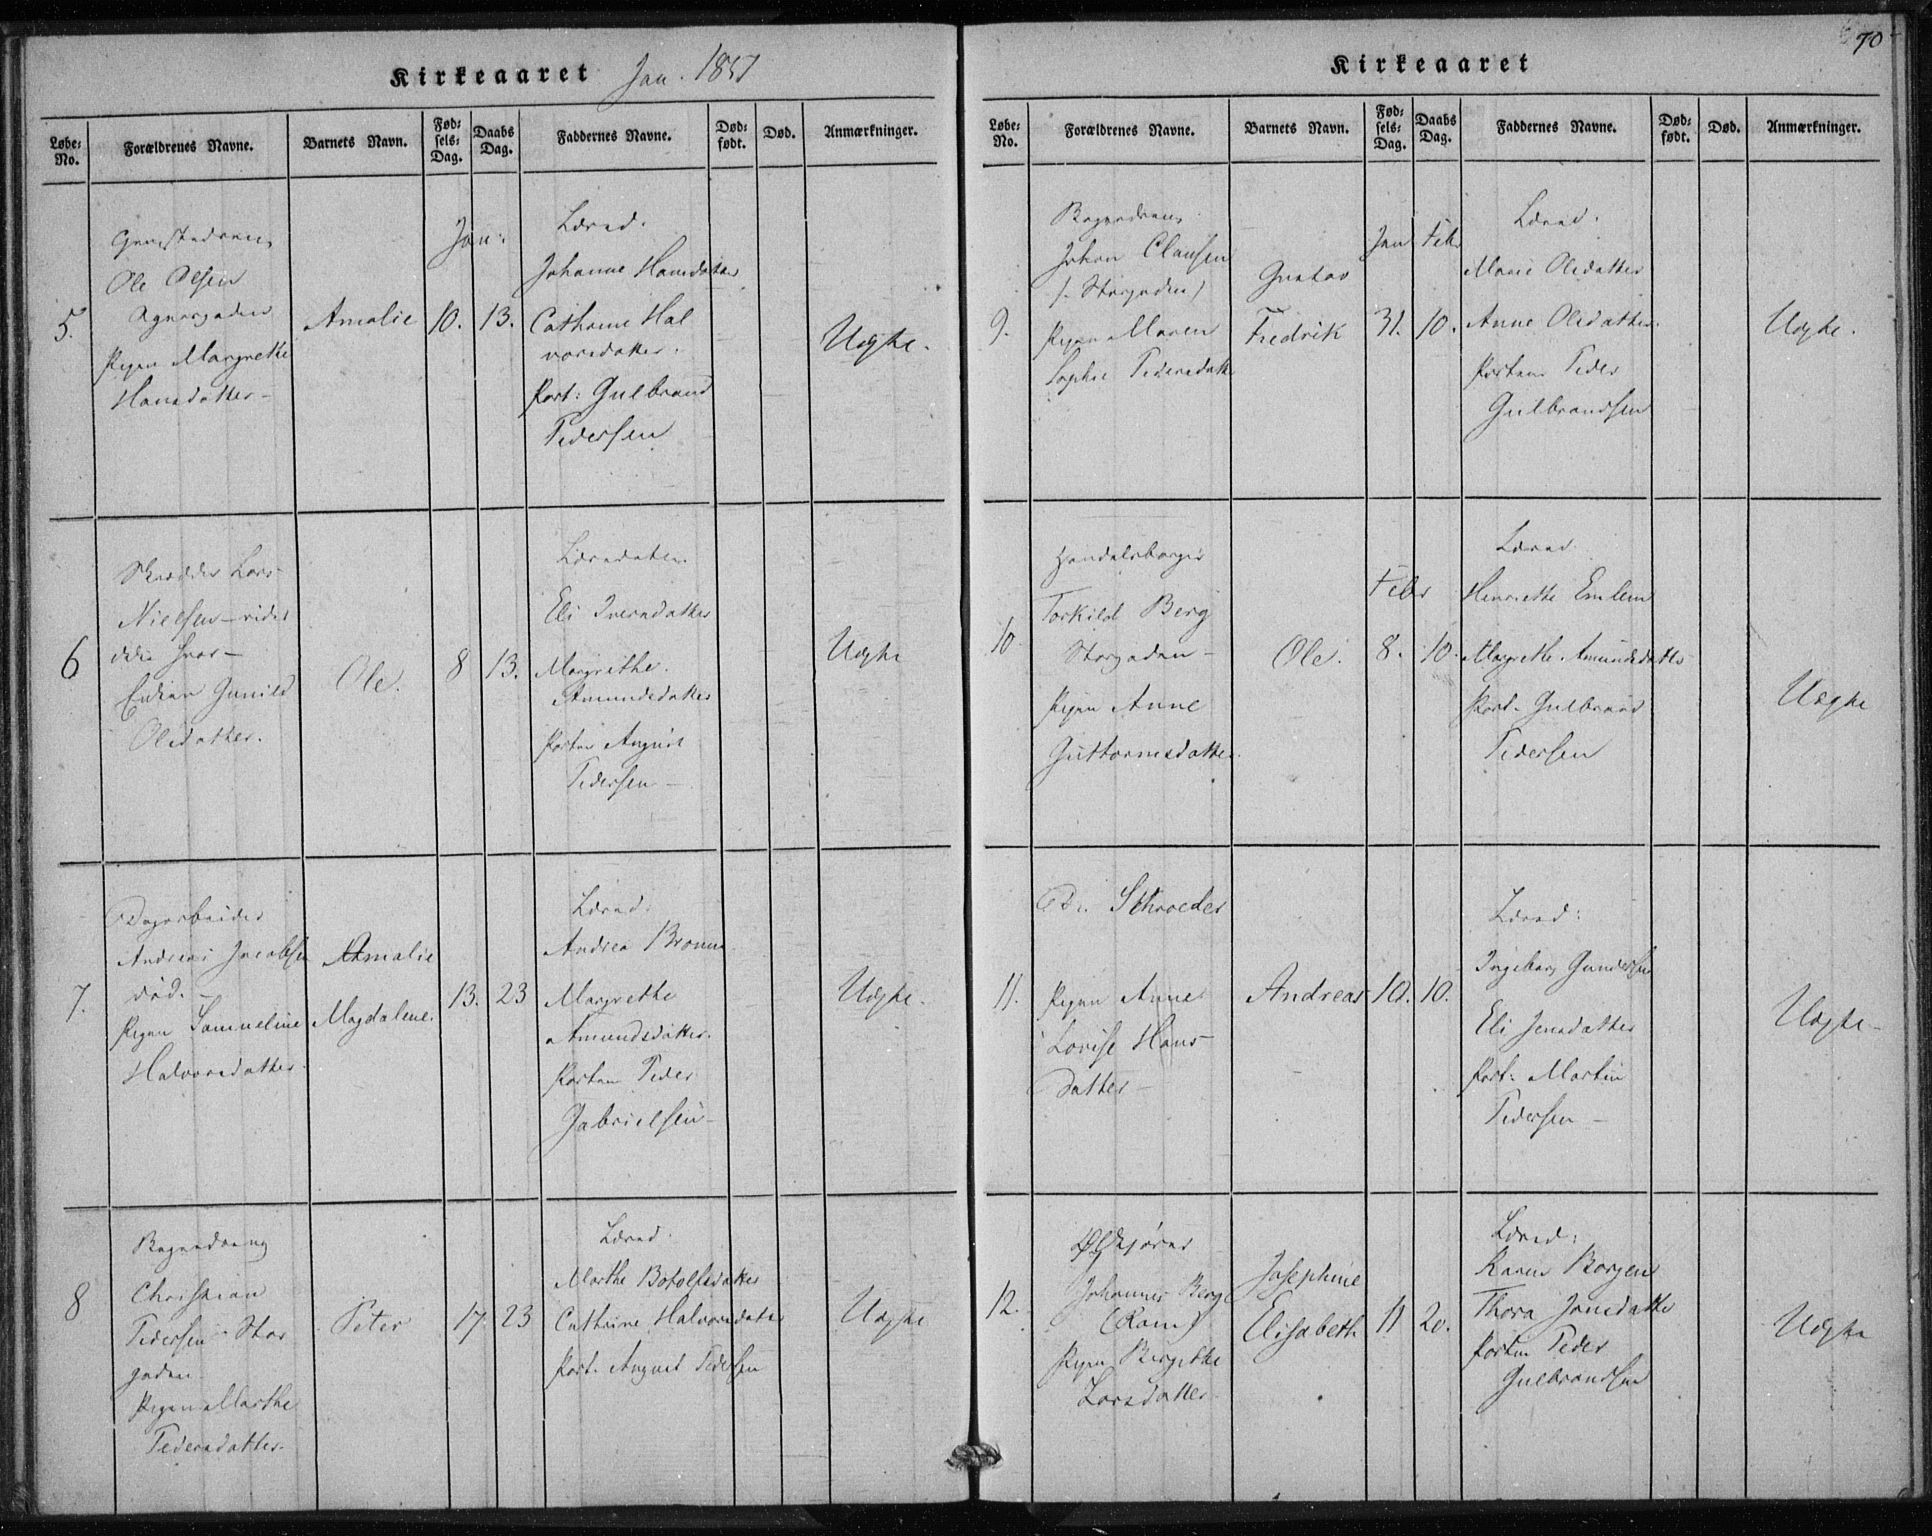 Kirkeaaret Jan. 1851
Løbe-No.
Forældrenes Navne.
Barnets Navn.
Fødsels-Dag.
Daabs Dag.
Faddernes Navne.
Dødfødt.
Død.
Anmærkninger.
5.
Ole Olsen
Pigen Margrethe
Hansdatter
Amalie
Jan:
10.
13.
Johanne Hansdatter
Cathrine Hal
vorsdatter.
Port: Gulbrand
Pedersen
Uægte.
6
Skrædder Lars
Nielsen
Gunild
Olsdatter.
Ole.
8
13.
Eli Iversdatter
Margrethe
Amundsdatter
Portn August
Pedersen
Uægte
7.
Dagarbeider
Andreas Jacobsen
Pigen Samueline
Halvorsdatter
Amalie
Magdalene.
13.
23
Andrea
Margrethe
Amundsdatter.
Peder
Gabrielsen
Uægte.
8
Christian
Pedersen Stor
gaden
Pigen Marthe
Pedersdatter.
Peter
17
23
Marthe Botolfsdatter
Cathrine Halvorsdatter
Port. August Pedersen
Uægte
70
Kirkeaaret
Løbe-No.
Forældrenes Navne.
Barnets Navn.
Fødsels-Dag.
Daabs Dag.
Faddernes Navne.
Dødfødt.
Død.
Anmærkninger.
9.
Johan Clausen
(Storgaden)
Pigen Maren
Sophie Pedersdatt
Gustav
Fredrik
Jan
31.
Febr
10.
Marie Olsdatter
Anne Olsdatter.
Peder
Gulbrandsen
Uægte.
10
Handelsborger
Torkild Berg
Storgaden
Pigen Anne
Guttormsdatter.
Ole.
Febr
8.
10.
Henriette
Margrethe Amundsdatter
Port. Gulbrand
Pedersen
Uægte
11.
Schroeder
Pigen Anne
Lovise Hans
datter
Andreas
10.
10.
Ingeborg Gundersen
Eli Jensdatter
Port: Martin
Pedersen
Uægte
12.
Johannes Berg
Pigen Birgitte
Larsdatter
Josephine
Elisabeth
11
20.
Karen Borgen
Thora Jonsdatter
Peder
Gulbrandsen
Uægte